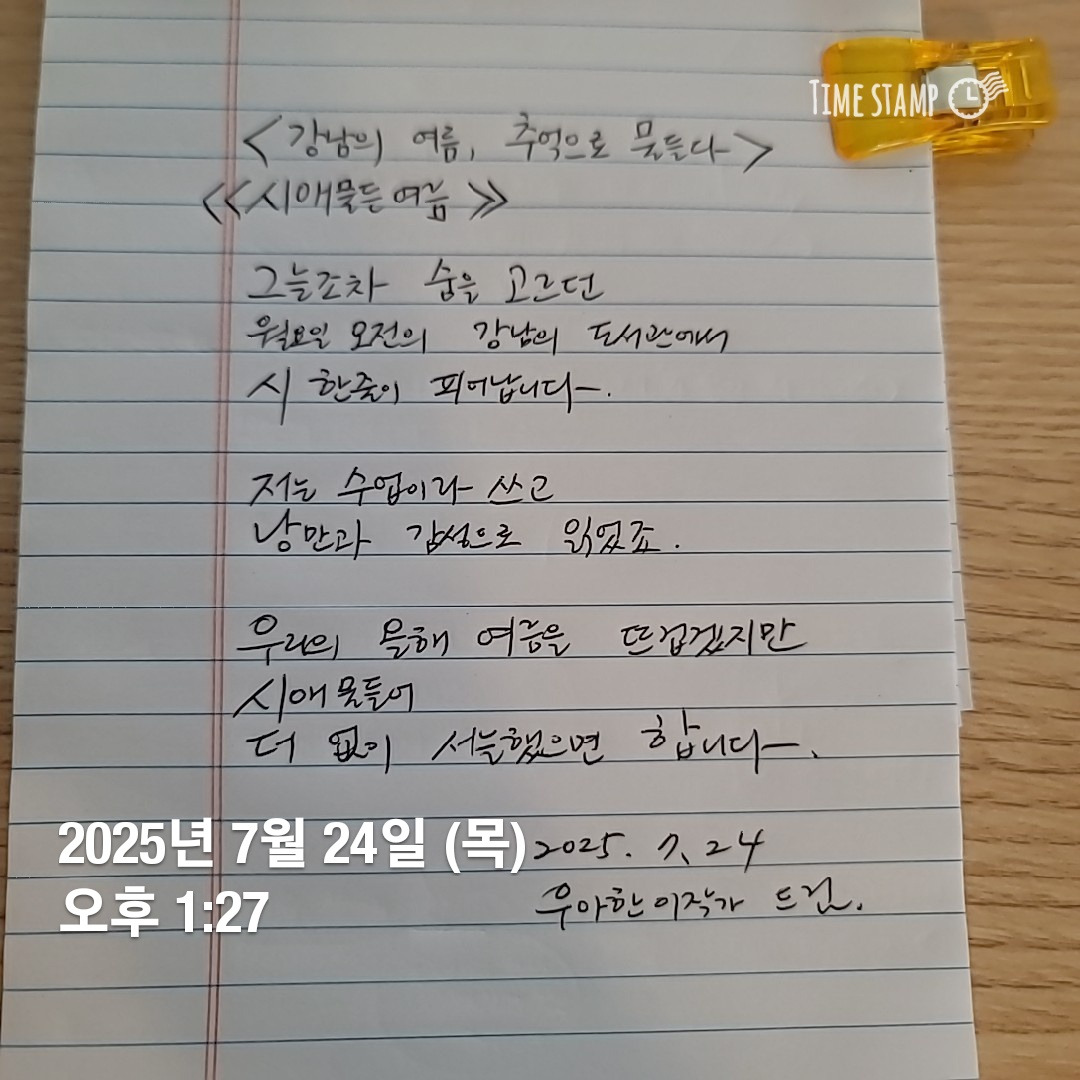 TIME STAMP
<강남의 여름, 추억으로 물들다>
<<시애물든여름>>
그늘조차 숨을 고르던
월요일 오전의 강남의 도서관에서
시 한줄이 피어납니다.
저는 수업이라 쓰고
낭만과 감성으로 읽었죠.
우리의 올해 여름을 뜨겁겠지만
시애물들어
더 없이 서늘했으면 합니다.
2025. 7. 24
우아한이작가 드림.
2025년 7월 24일 (목)
오후 1:27